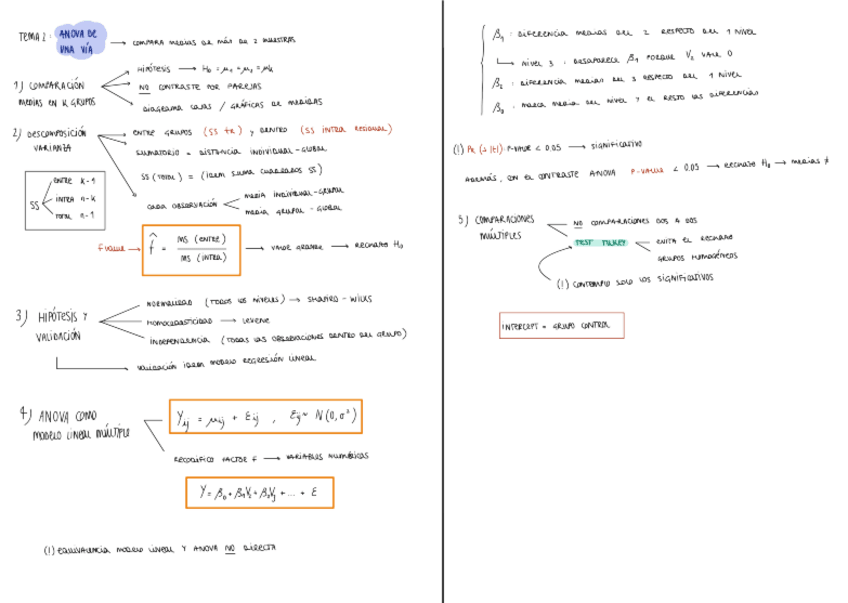 TEMA 2: ANOVA DE UNA VÍA → COMPARA MEDIAS DE MÁS DE 2 MUESTRAS
1) COMPARACIÓN MEDIAS EN K GRUPOS
HIPÓTESIS → H₀ = μ₁ = μ₂ = μk
NO CONTRASTE POR PAREJAS
DIAGRAMA CAJAS / GRÁFICAS DE MEDIAS
2) DESCOMPOSICIÓN VARIANZA
ENTRE GRUPOS (SS tr) y DENTRO (SS INTRA RESIDUAL)
SUMATORIO = DISTANCIA INDIVIDUAL - GLOBAL
SS (TOTAL) = (IDEM SUMA CUADRADOS SS)
CADA OBSERVACIÓN
MEDIA INDIVIDUAL-GRUPAL
MEDIA GRUPAL - GLOBAL
SS
ENTRE K-1
INTRA n-k
TOTAL n-1
F value → f̂ = MS (ENTRE) / MS (INTRA) → VALOR GRANDE → RECHAZO H₀
3) HIPÓTESIS Y VALIDACIÓN
NORMALIDAD (TODOS LOS NIVELES) → SHAPIRO - WILKS
HOMOCEDASTICIDAD → LEVENE
INDEPENDENCIA (TODAS LAS OBSERVACIONES DENTRO DEL GRUPO)
VALIDACIÓN IDEM MODELO REGRESIÓN LINEAL
4) ANOVA COMO MODELO LINEAL MÚLTIPLE
Yij = μij + Eij , Eij ~ N(0, σ²)
RECODIFICO FACTOR F → VARIABLES NUMÉRICAS
Y = β₀ + β₁V₂ + β₂V₃ + ... + E
(!) EQUIVALENCIA MODELO LINEAL Y ANOVA NO DIRECTA
β₁ : DIFERENCIA MEDIAS DEL 2 RESPECTO DEL 1 NIVEL
NIVEL 3 : DESAPARECE β₁ PORQUE V₂ VALE 0
β₂ : DIFERENCIA MEDIAS DEL 3 RESPECTO DEL 1 NIVEL
: MARCA MEDIA DEL NIVEL 1 EL RESTO LAS DIFERENCIAS
(!) P-VALUE < 0.05 → SIGNIFICATIVO
ADEMÁS, CON EL CONTRASTE ANOVA P-VALUE < 0.05 → RECHAZO H₀ → MEDIAS ≠
5) COMPARACIONES MÚLTIPLES
NO COMPARACIONES DOS A DOS
TEST TUKEY
EVITA EL RECHAZO
GRUPOS HOMOGÉNEOS
(!) CONTEMPLO SOLO LOS SIGNIFICATIVOS
INTERCEPT = GRUPO CONTROL